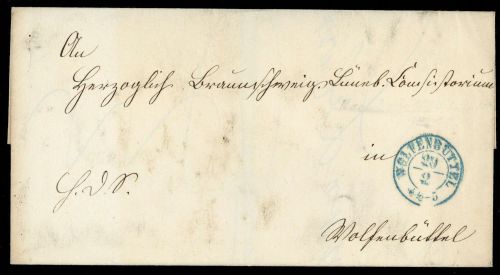 An
Herzoglich Braunschweig. Lüneb. Consistorium
in
WOLFENBÜTTEL
20
2
4½-5
H. D. S.
Wolfenbüttel